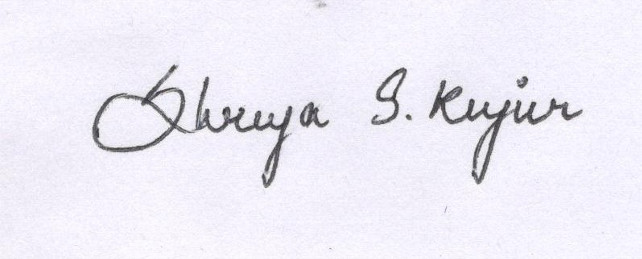 Shreya S. Kujur